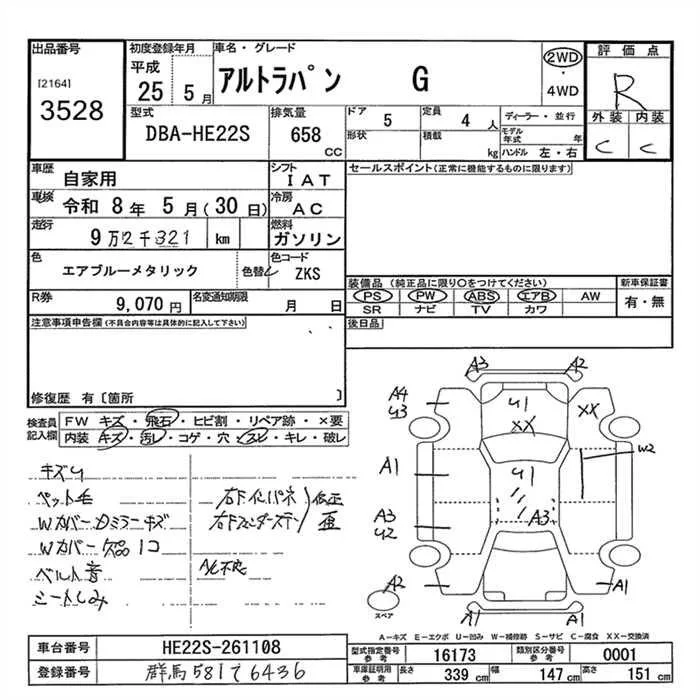 出品番号 初度登録年月 車名・グレード 評価点
[2164] 3528
平成 25 5月 アルトラパン G 2WD・4WD R
型式 DBA-HE22S 排気量 658 CC
ドア 5 定員 4 人 ディーラー・並行
形状 積載 kg モデル年式 年 ハンドル 左・右
外装 内装
C C
車歴 自家用 シフト IAT
車検 令和 8年 5月(30日) 冷房 AC
走行 9万2千321 km 燃料 ガソリン
色 エアブルーメタリック 色替 色コード ZKS
R券 9,070円 名変通知期限 月 日
セールスポイント(正常に機能するものに限ります)
装備品(純正品に限り○をつけてください) 新車保証書
PS PW ABS エアB AW 有・無
SR ナビ TV カワ
後日品
注意事項申告欄(不具合内容等は具体的に記入して下さい)
修復歴 有[箇所 ]
検査員記入欄 FW キズ・飛石・ヒビ割・リペア跡・×要
内装 キズ・汚レ・コゲ・穴・スレ・キレ・破レ
ペット毛
Wカバー カミラーキズ
Wカバー欠品1コ
ベルト音
シートしみ
A/C不良
A3 A2
A4
U3
U1
XX
XX
W2
A1
U1
A3
U2
A3
A2
スペア
A1
A1
A1
A-キズ E-エクボ U-凹み W-補修跡 S-サビ C-腐食 XX-交換済
車台番号 HE22S-261108
登録番号 群馬581て6436
型式指定番号 参考 16173 類別区分番号 参考 0001
車庫証明用 参考 長さ 339 cm 幅 147 cm 高さ 151 cm